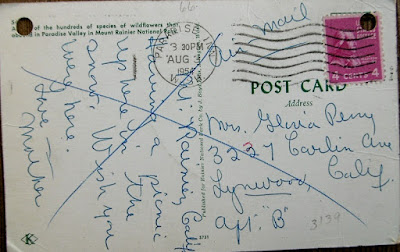 of the hundreds of species of wildflowers that
abound in Paradise Valley in Mount Rainier National
Air mail
3 30 PM
AUG 3
195
4 CENTS 4
POST CARD
Address
Mt. Rainey Calif
Having a picnic
up here in the
snow. Wish you
were here.
Love -
Mother
Mrs. Gloria Perry
3227 Carlin Ave
Lynwood,
Calif.
Apt. "B"
3139
K